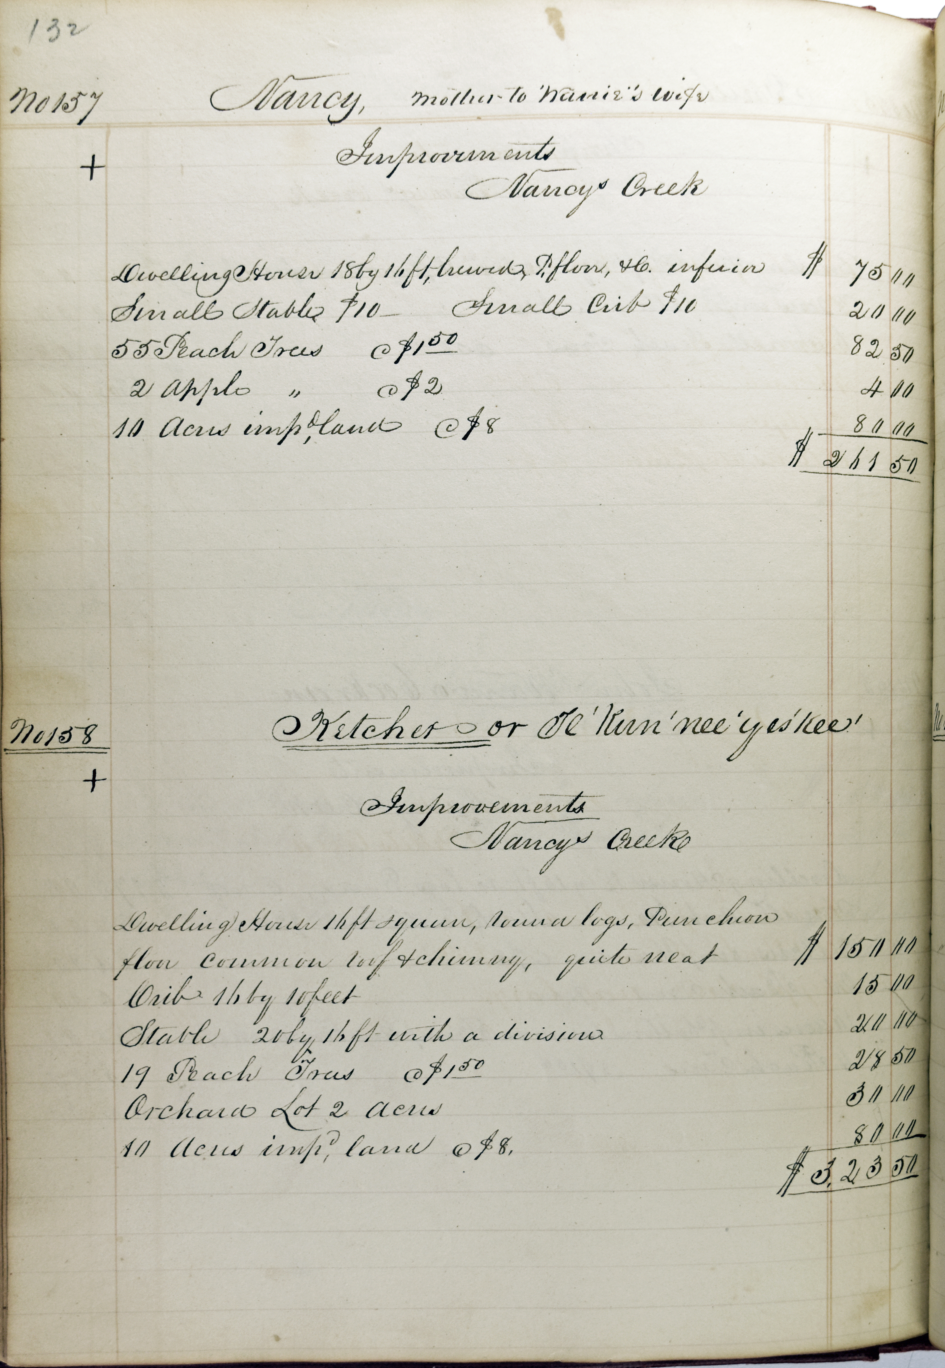 132
No 157 Nancy, Mother to Nannie's wife
+ Improvements
Nancys Creek
Dwelling House 18 by 16 ft, hewed, P. floor, &C. inferior $ 75 00
Small Stable $10 — Small Crib $10 20 00
55 Peach Trees @ $1 50 82 50
2 Apple " @ $2 4 00
10 Acres imp.d, land @ $8 80 00
$ 261 50
No 158 Ketcher or Te'Kun'nee'yes'kee'
+
Improvements
Nancys Creek
Dwelling House 16 ft square, round logs, Puncheon
floor common roof & chimny, quite neat $ 150 00
Crib 16 by 10 feet 15 00
Stable 20 by 16 ft with a division 20 00
19 Peach Trees @ $1 50 28 50
Orchard Lot 2 Acres 30 00
10 Acres imp.d, land @ $8. 80 00
$ 323 50